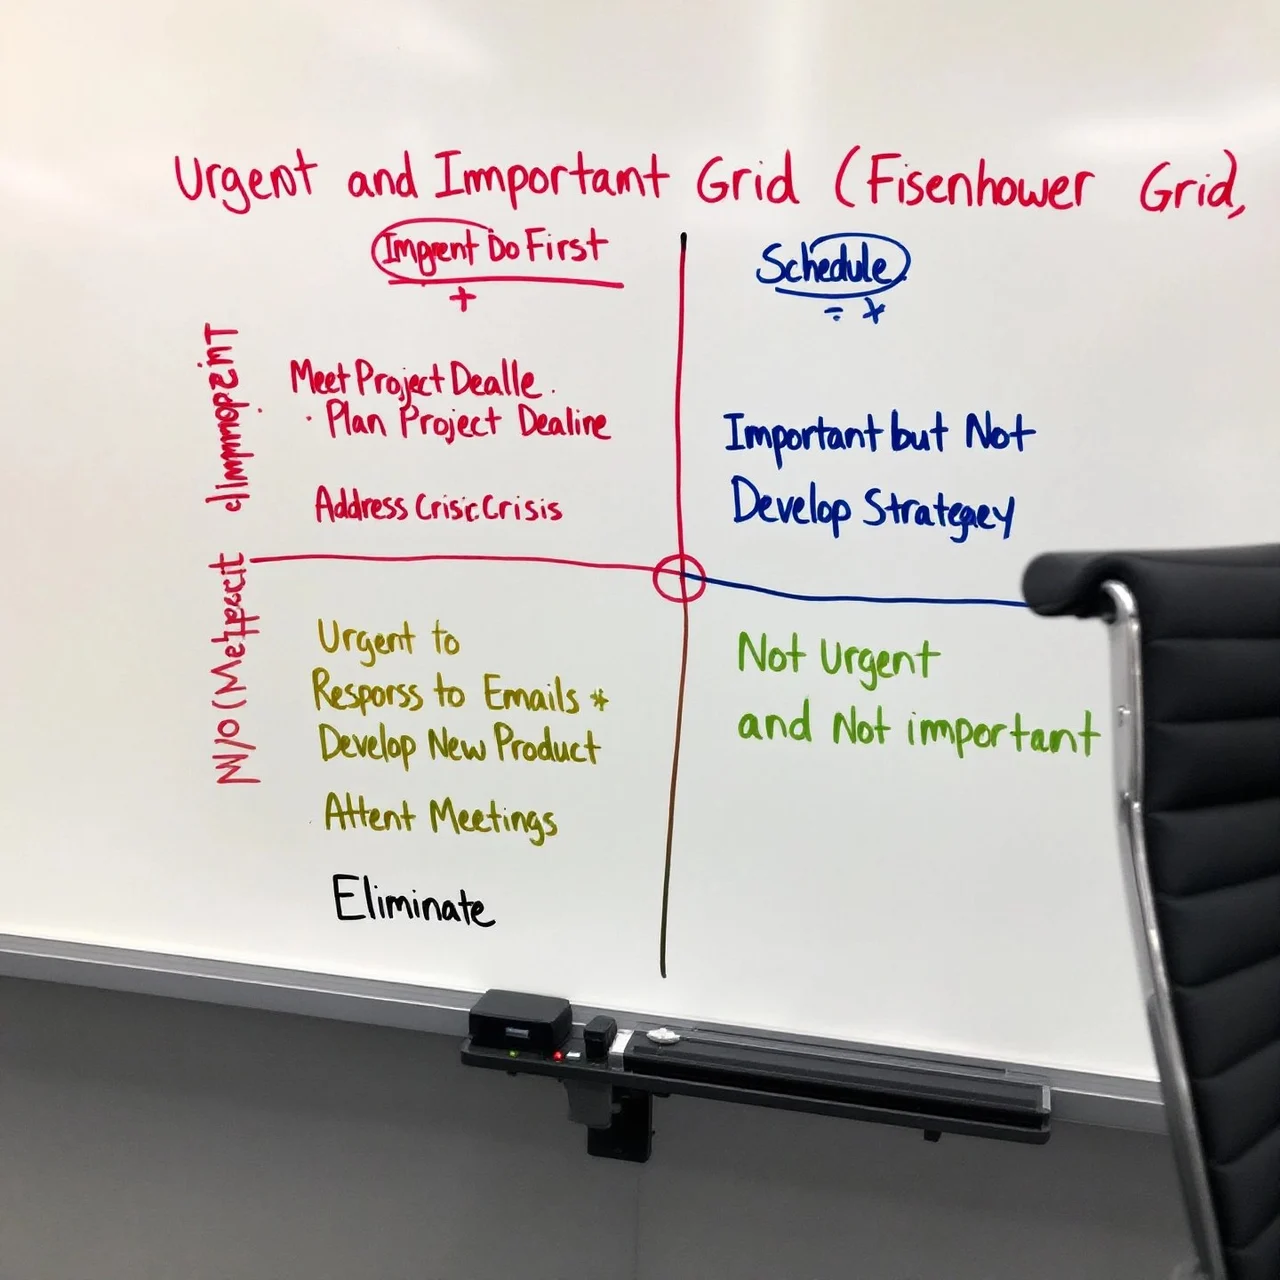 Urgent and Immportant Grid (Fisenhower Grid,
Do First
Schedule
Meet Project Dealle .
· Plan Project Dealine
Address Crisic Crisis
Important but Not
Develop Strategey
Urgent to
Resporss to Emails *
Develop New Product
Attent Meetings
Eliminate
Not Urgent
and Not important